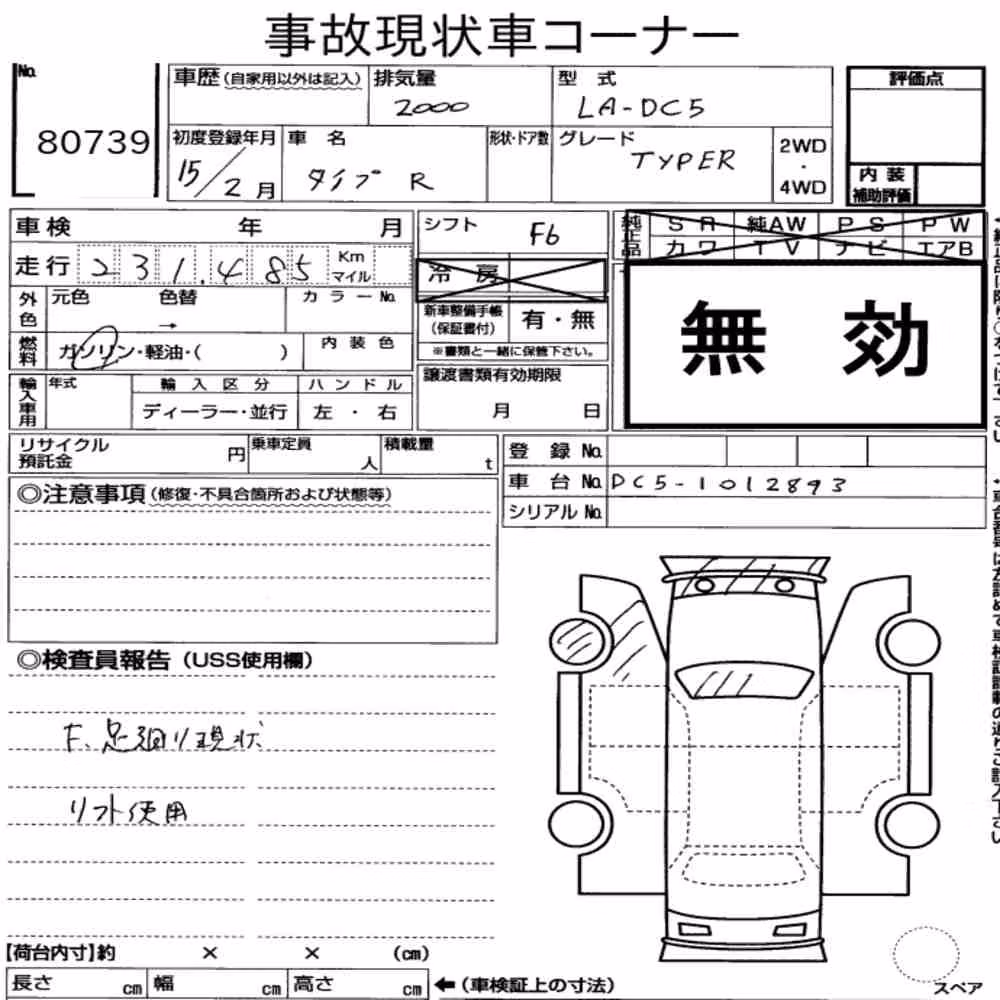 事故現状車コーナー
No. 80739
車歴(自家用以外は記入) 排気量 2000 型式 LA-DC5 評価点
初度登録年月 15/2月 車名 タイプ R 形状・ドア数 グレード TYPER 2WD・4WD
内装補助評価
車検 年 月 シフト F6 純正品 SR 純AW PS PW
カワ TV ナビ エアB
走行 231,485 Km マイル 冷房
外色 元色 色替 → カラーNo. 新車整備手帳(保証書付) 有・無 無効
燃料 ガソリン・軽油・( ) 内装色 ※書類と一緒に保管下さい。
輸入車用 年式 輸入区分 ハンドル 譲渡書類有効期限
ディーラー・並行 左・右 月 日
リサイクル預託金 円 乗車定員 人 積載量 t 登録No.
車台No. DC5-1012893
シリアルNo.
◎注意事項(修復・不具合箇所および状態等)
◎検査員報告(USS使用欄)
F、足廻り現状
リフト使用
【荷台内寸】約 × × (cm)
長さ cm 幅 cm 高さ cm ←(車検証上の寸法)
スペア